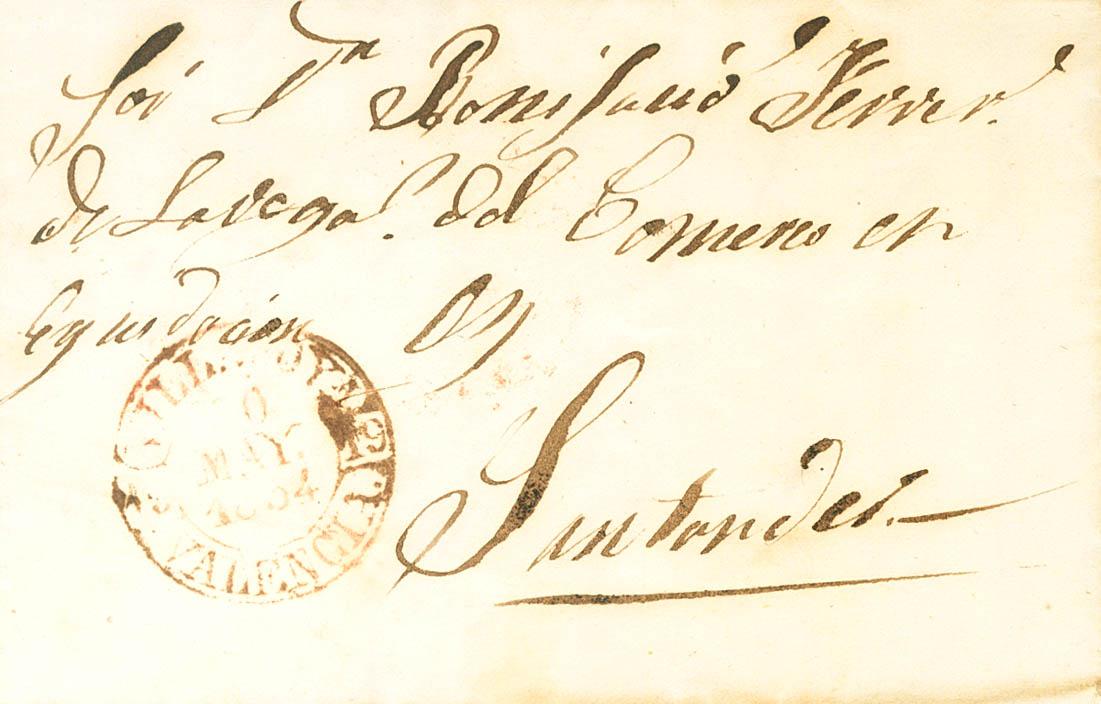 Sor Dn Bonifacio Ferrer.
de La vega. del Comercio en
Liquidación
Santander.
MAY.
1854
VALENCIA